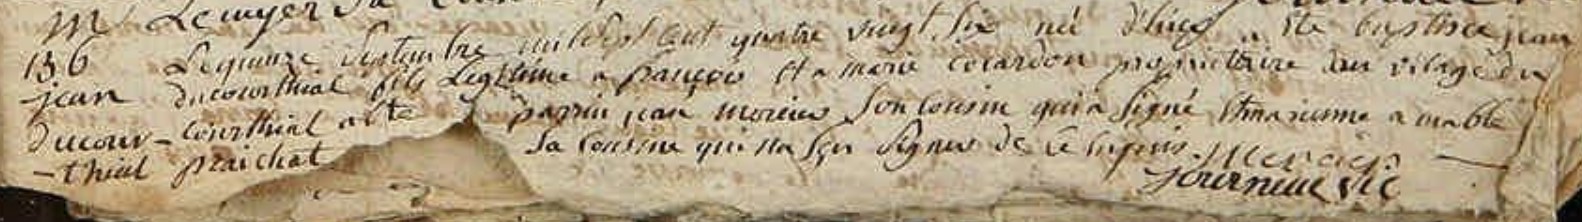 m
136 Le quinze septembre mil sept cent quatre vingt six né d'hier a ete baptisé jean
jean ducourthial fils Legitime a françois et a marie courdon propriettaire au vilage du
ducour- courthial a ete parrin jean mercier son cousin qui a signé et maraine amable
-thial praichat sa cousine qui na sçu signer de ce enquis. Mercier
Journeuil vic